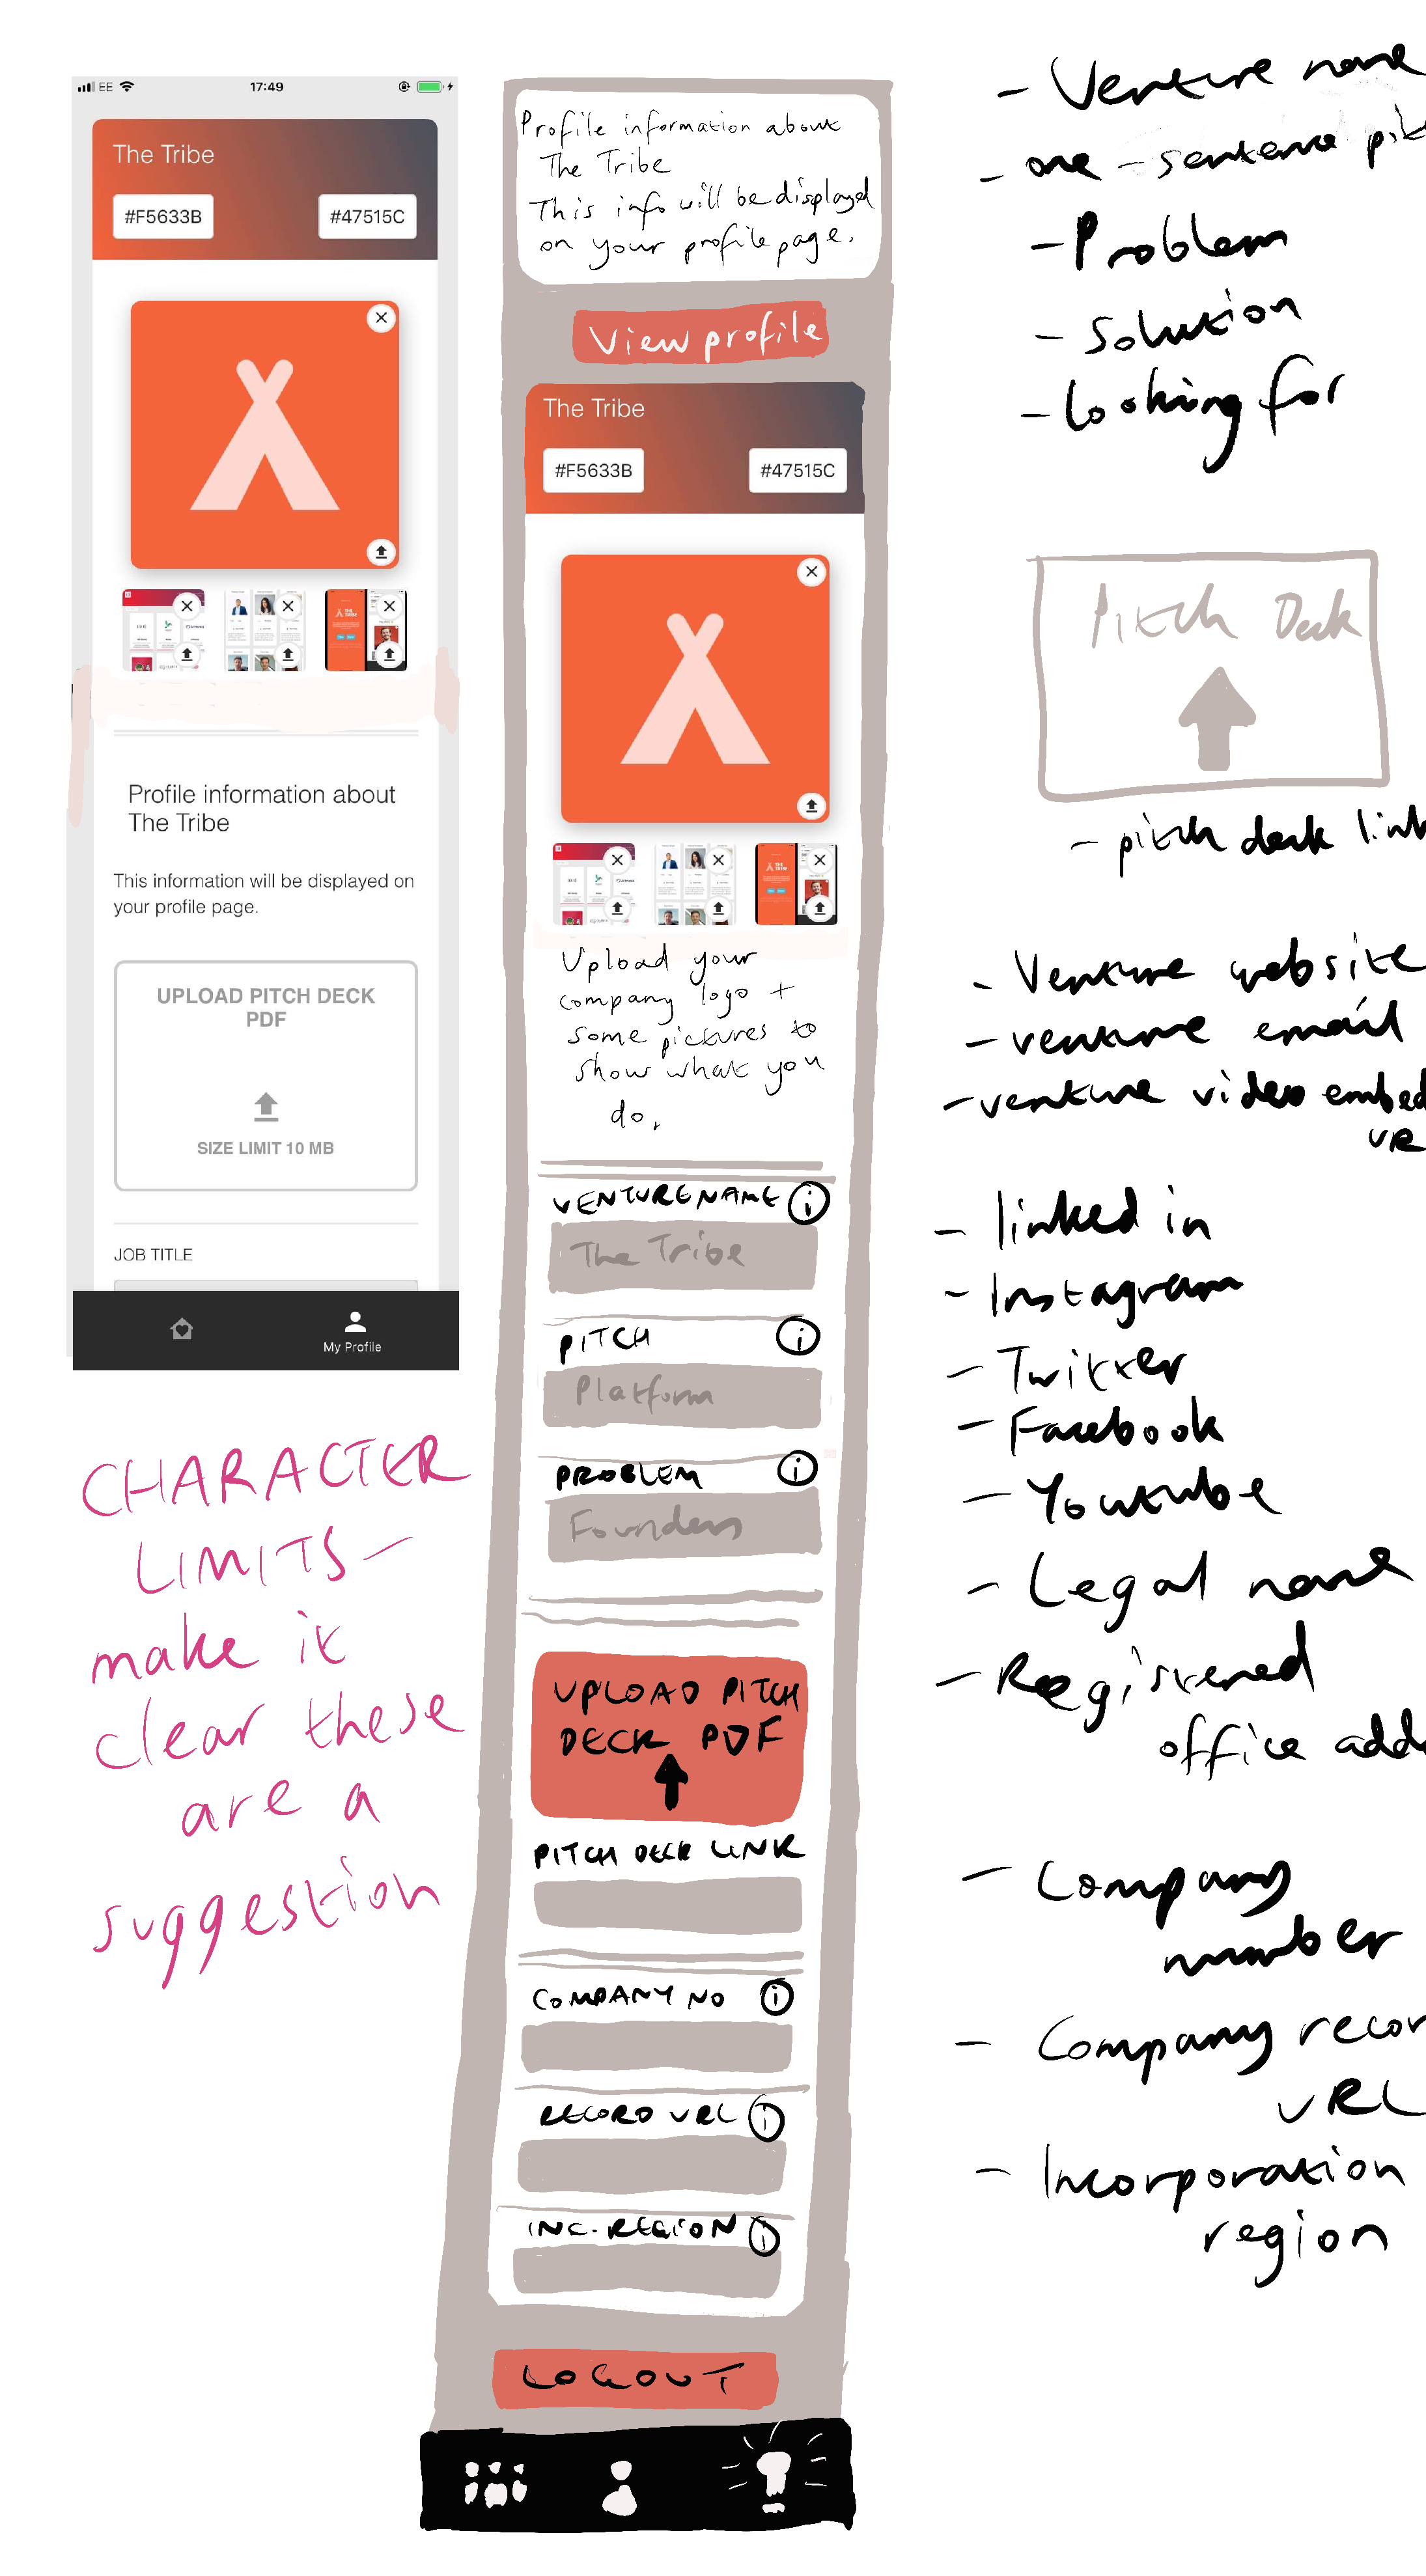 EE
17:49
The Tribe
#F5633B
#47515C
Profile information about
The Tribe
This information will be displayed on
your profile page.
UPLOAD PITCH DECK
PDF
SIZE LIMIT 10 MB
JOB TITLE
My Profile
CHARACTER
LIMITS -
make it
clear these
are a
suggestion
Profile information about
The Tribe
This info will be displayed
on your profile page.
View profile
The Tribe
#F5633B
#47515C
Upload your
company logo +
some pictures to
show what you
do.
VENTURE NAME i
The Tribe
PITCH i
Platform
PROBLEM i
Founders
UPLOAD PITCH
DECK PDF
PITCH DECK LINK
COMPANY NO i
RECORD URL i
INC. REGION i
LOGOUT
- Venture name
- one-sentence pit
- Problem
- Solution
- looking for
Pitch Deck
- pitch deck link
- Venture website
- venture email
- venture video embed
UR
- linked in
- Instagram
- Twitter
- Facebook
- Youtube
- Legal name
- Registered
office add
- Company
number
- Company recor
URL
- Incorporation
region